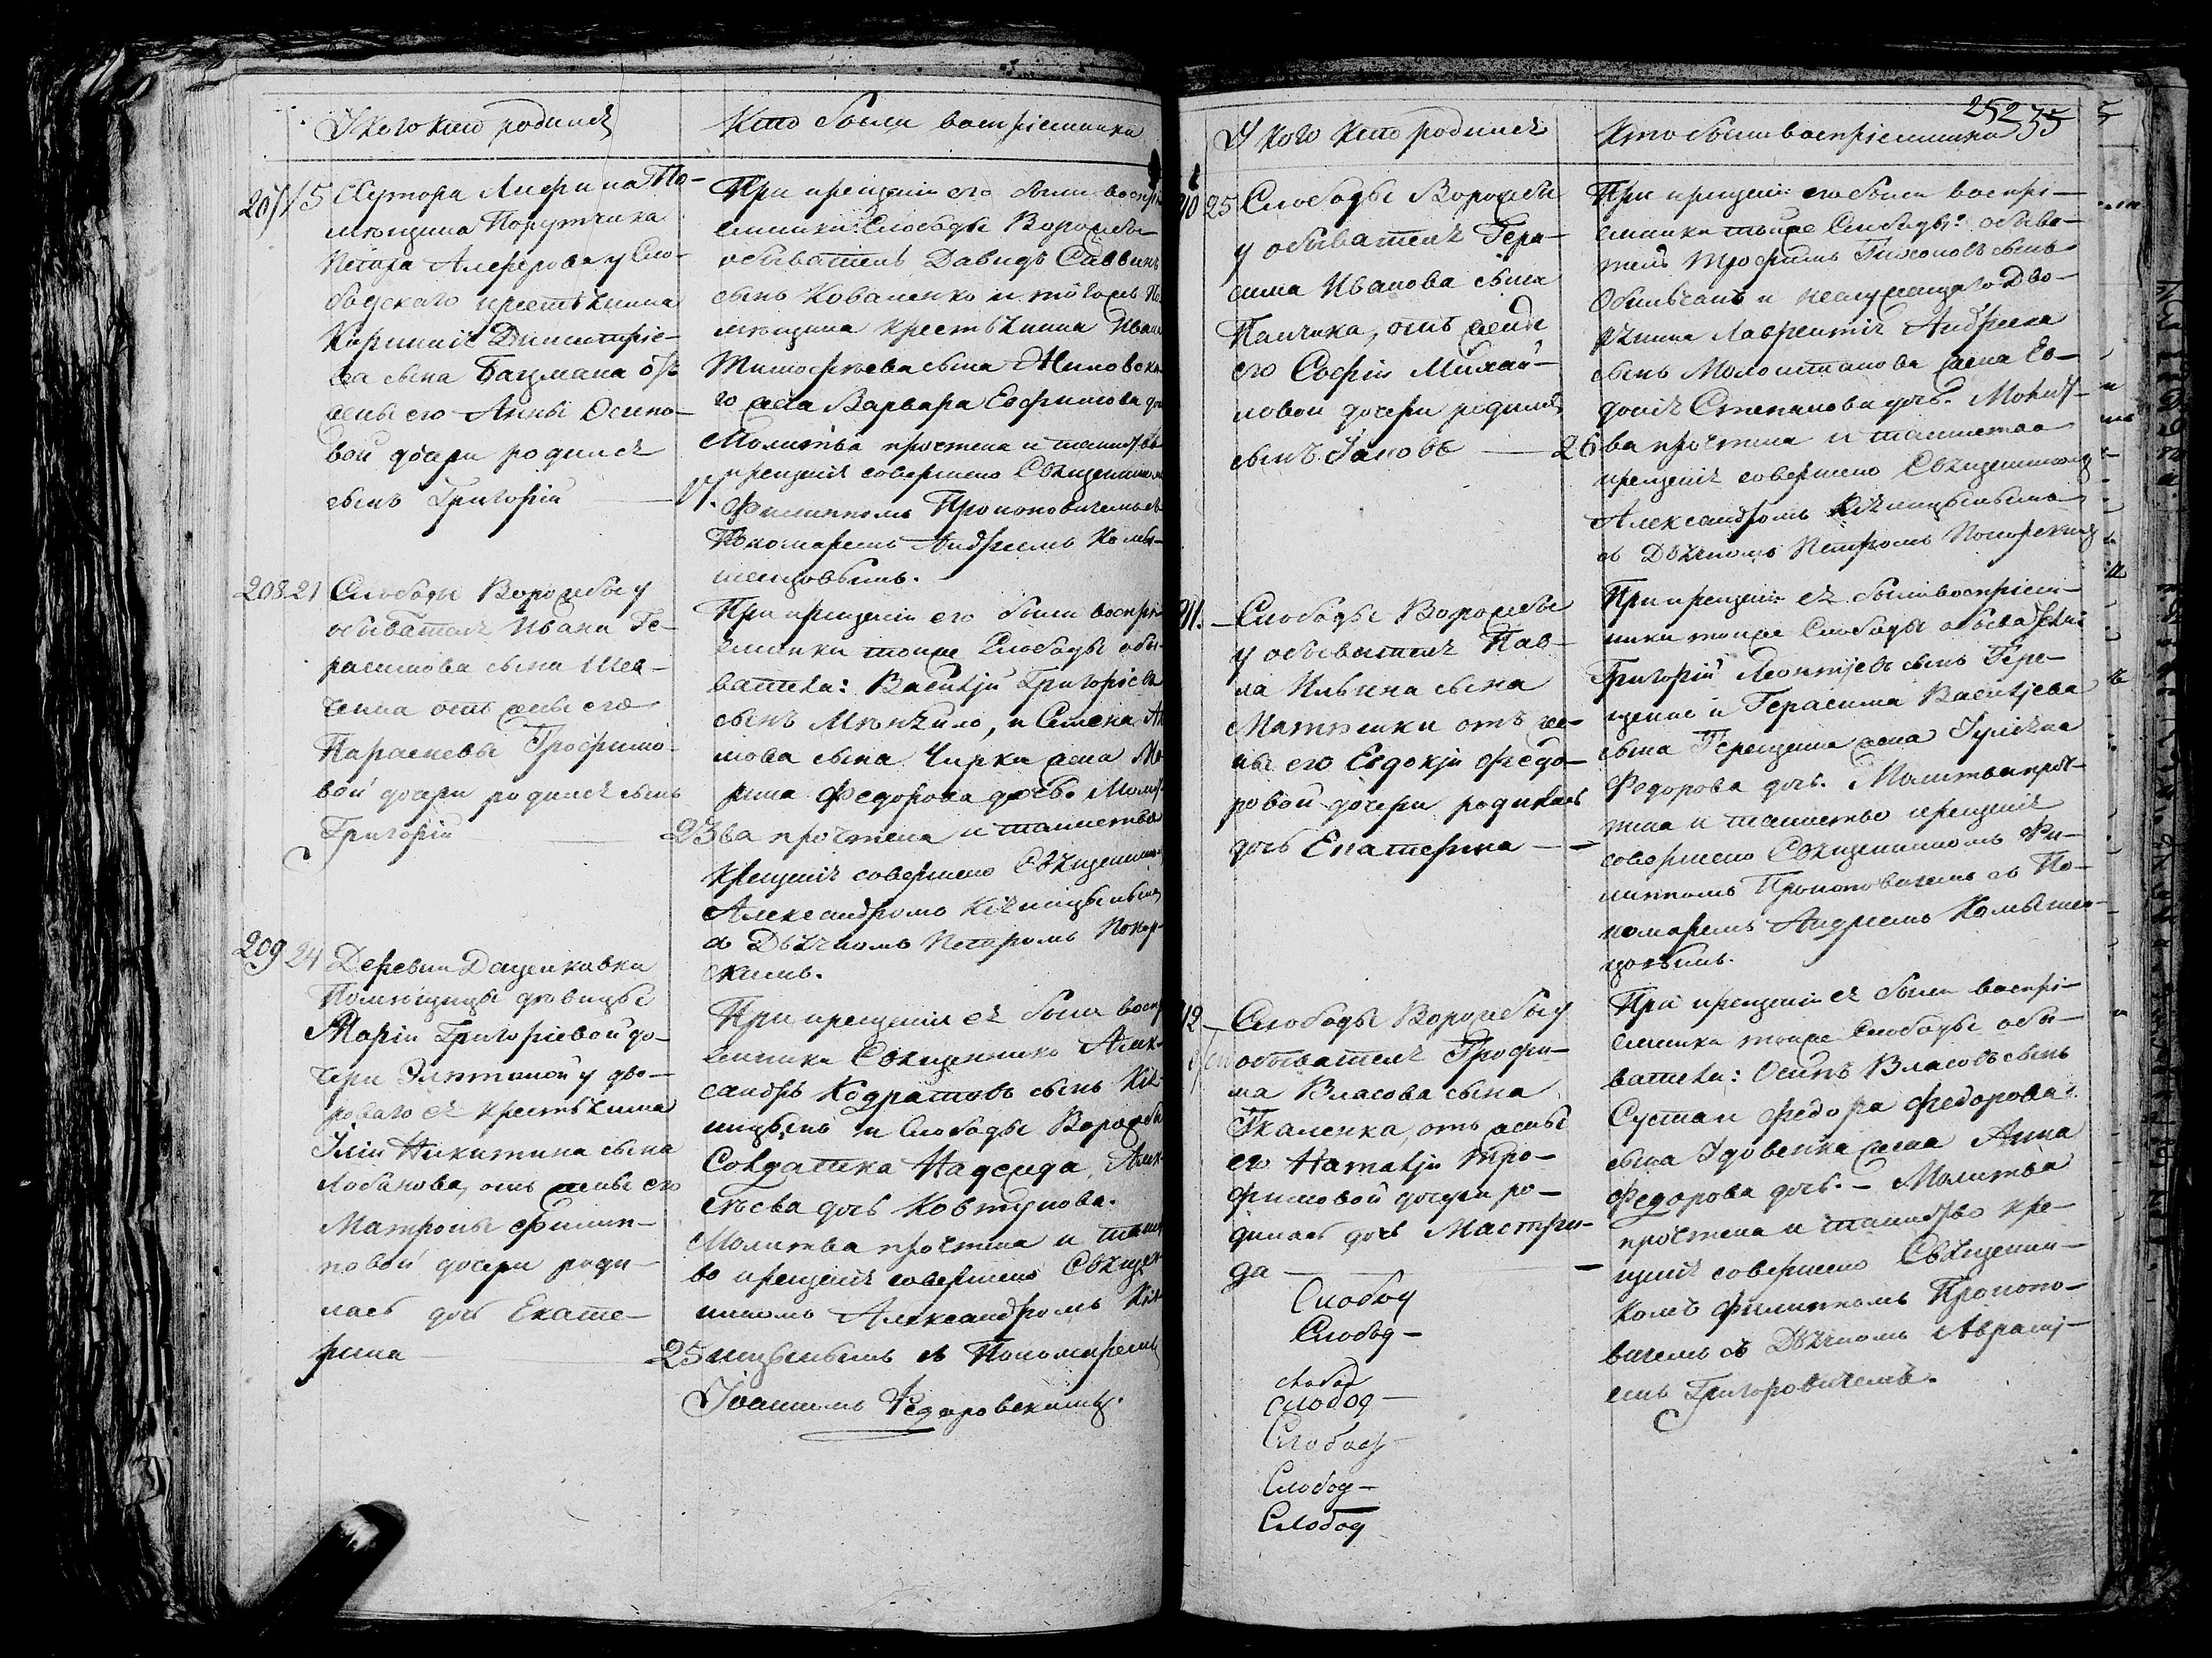 У кого кто родился
Кто были воспрiемники
207 15 Хутора Лифина По-
мѣщика Порутчика
Петра Алферова у Сло-
бодскаго крестьянина
Корнилiя Дмитрiе-
ва сына Бацмана отъ
жены его Анны Осипо-
вой дочери родился
сынъ Григорiй — 17.
При крещенiи его были воспрi-
емники: Слободы Ворожбы
обыватель Давидъ Саввинъ
сынъ Коваленко и того жъ По-
мѣщика крестьянина Ивана
Тимофѣева сына Жиловска-
го жена Варвара Евфимова дочь
Молитва прочтена и таинство
крещенiя совершено Священникомъ
Филиппомъ Прокоповичемъ съ
Пономаремъ Андреемъ Колы-
шенцовымъ.
208 21 Слободы Ворожбы у
обывателя Ивана Ге-
расимова сына Шев-
ченка отъ жены его
Параскевы Трофимо-
вой дочери родился сынъ
Григорiй — 23
При крещенiи его были воспрi-
емники тоижъ Слободы обы-
ватели: Василiй Григорiевъ
сынъ Мѣняйло, и Семена
мова сына Чирки жена Ма-
рина Федорова дочь. Молит-
ва прочтена и таинство
крещенiя совершено Священникомъ
Александромъ Кiяницынымъ
съ Дьячкомъ Петромъ Покор-
скимъ.
209 24 Деревни Даценковки
Помѣщицы дѣвицы
Марiи Григорiевой до-
чери у дво-
роваго ея крестьянина
Iлiи Никитина сына
Лобанова, отъ жены его
Матроны Филип-
повой дочери роди-
лась дочь Екате-
рина — 25
При крещенiи ея были воспрi-
емники Священникъ Алек-
сандръ Кодратовъ сынъ Кiя-
ницынъ и Слободы Ворожбы
Солдатка Надежда Алек-
сѣева дочь Ковтунова.
Молитва прочтена и таинст-
во крещенiя совершено Священ-
никомъ Александромъ Кiя-
ницынымъ съ Пономаремъ
Iоанномъ Федоровскимъ.
252 35
У кого кто родился
Кто были воспрiемники
210 25 Слободы Ворожбы
у обывателя Гера-
сима Иванова сына
Палчика, отъ жены
его Софiи Михай-
ловой дочери родился
сынъ Iаковъ — 26
При крещенiи его были воспрi-
емники тоижъ Слободы: обыва-
тель Трофимъ сынъ
и неслужащаго Дво-
рянина Лаврентiя Андреева
сынъ жена Ев-
докiя Степанова дочь. Молит-
ва прочтена и таинство
крещенiя совершено Священникомъ
Александромъ Кiяницынымъ
съ Дьячкомъ Петромъ Покорскимъ
211. — Слободы Ворожбы
у обывателя Пав-
ла Ильина сына
отъ же-
ны его Евдокiи Федо-
ровой дочери родилась
дочь Екатерина —
При крещенiи ея были воспрiем-
ники тоижъ Слободы обыватель
Григорiй Леонтiевъ сынъ Гере-
щенко и Герасима Василiева
сына Терещенка жена Iулiяна
Федорова дочь. Молитва проч-
тена и таинство крещенiя
совершено Священникомъ Фи-
липпомъ Прокоповичемъ съ По-
номаремъ Андреемъ Колышен-
цовымъ.
212 — Слободы Ворожбы у
обывателя Трофи-
ма Власова сына
Ткаченка, отъ жены
его Наталiи Тро-
фимовой дочери ро-
дилась дочь Мастри-
да —
При крещенiи ея были воспрi-
емники тоижъ Слободы обы-
ватели: Осипъ Власовъ сынъ
Суста и Федора Федорова
сына Удовенка жена Анна
Федорова дочь. — Молитва
прочтена и таинство кре-
щенiя совершено Священни-
комъ Филиппомъ Прокопо-
вичемъ съ Дьячкомъ Аврамi-
емъ Григоровичемъ.
Слободы
Слобод —
слобод
Слобод —
Слободы
Слобод —
Слобод